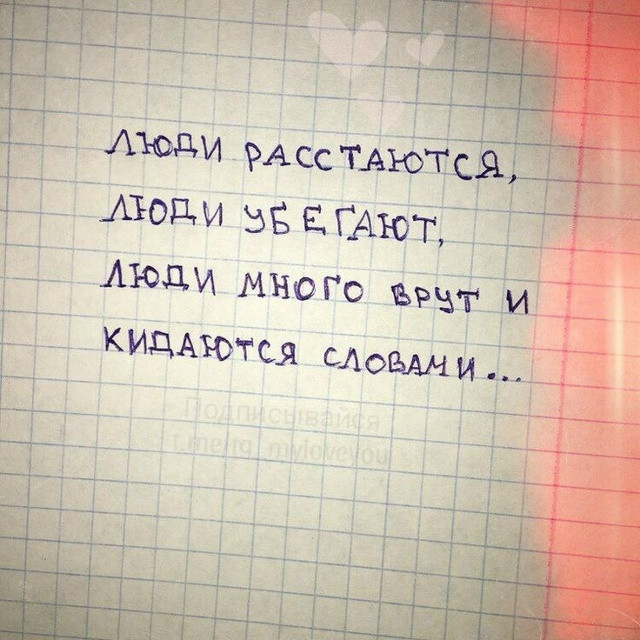 ЛЮДИ РАССТАЮТСЯ,
ЛЮДИ УБЕГАЮТ,
ЛЮДИ МНОГО ВРУТ И
КИДАЮТСЯ СЛОВАМИ...
Подписывайся